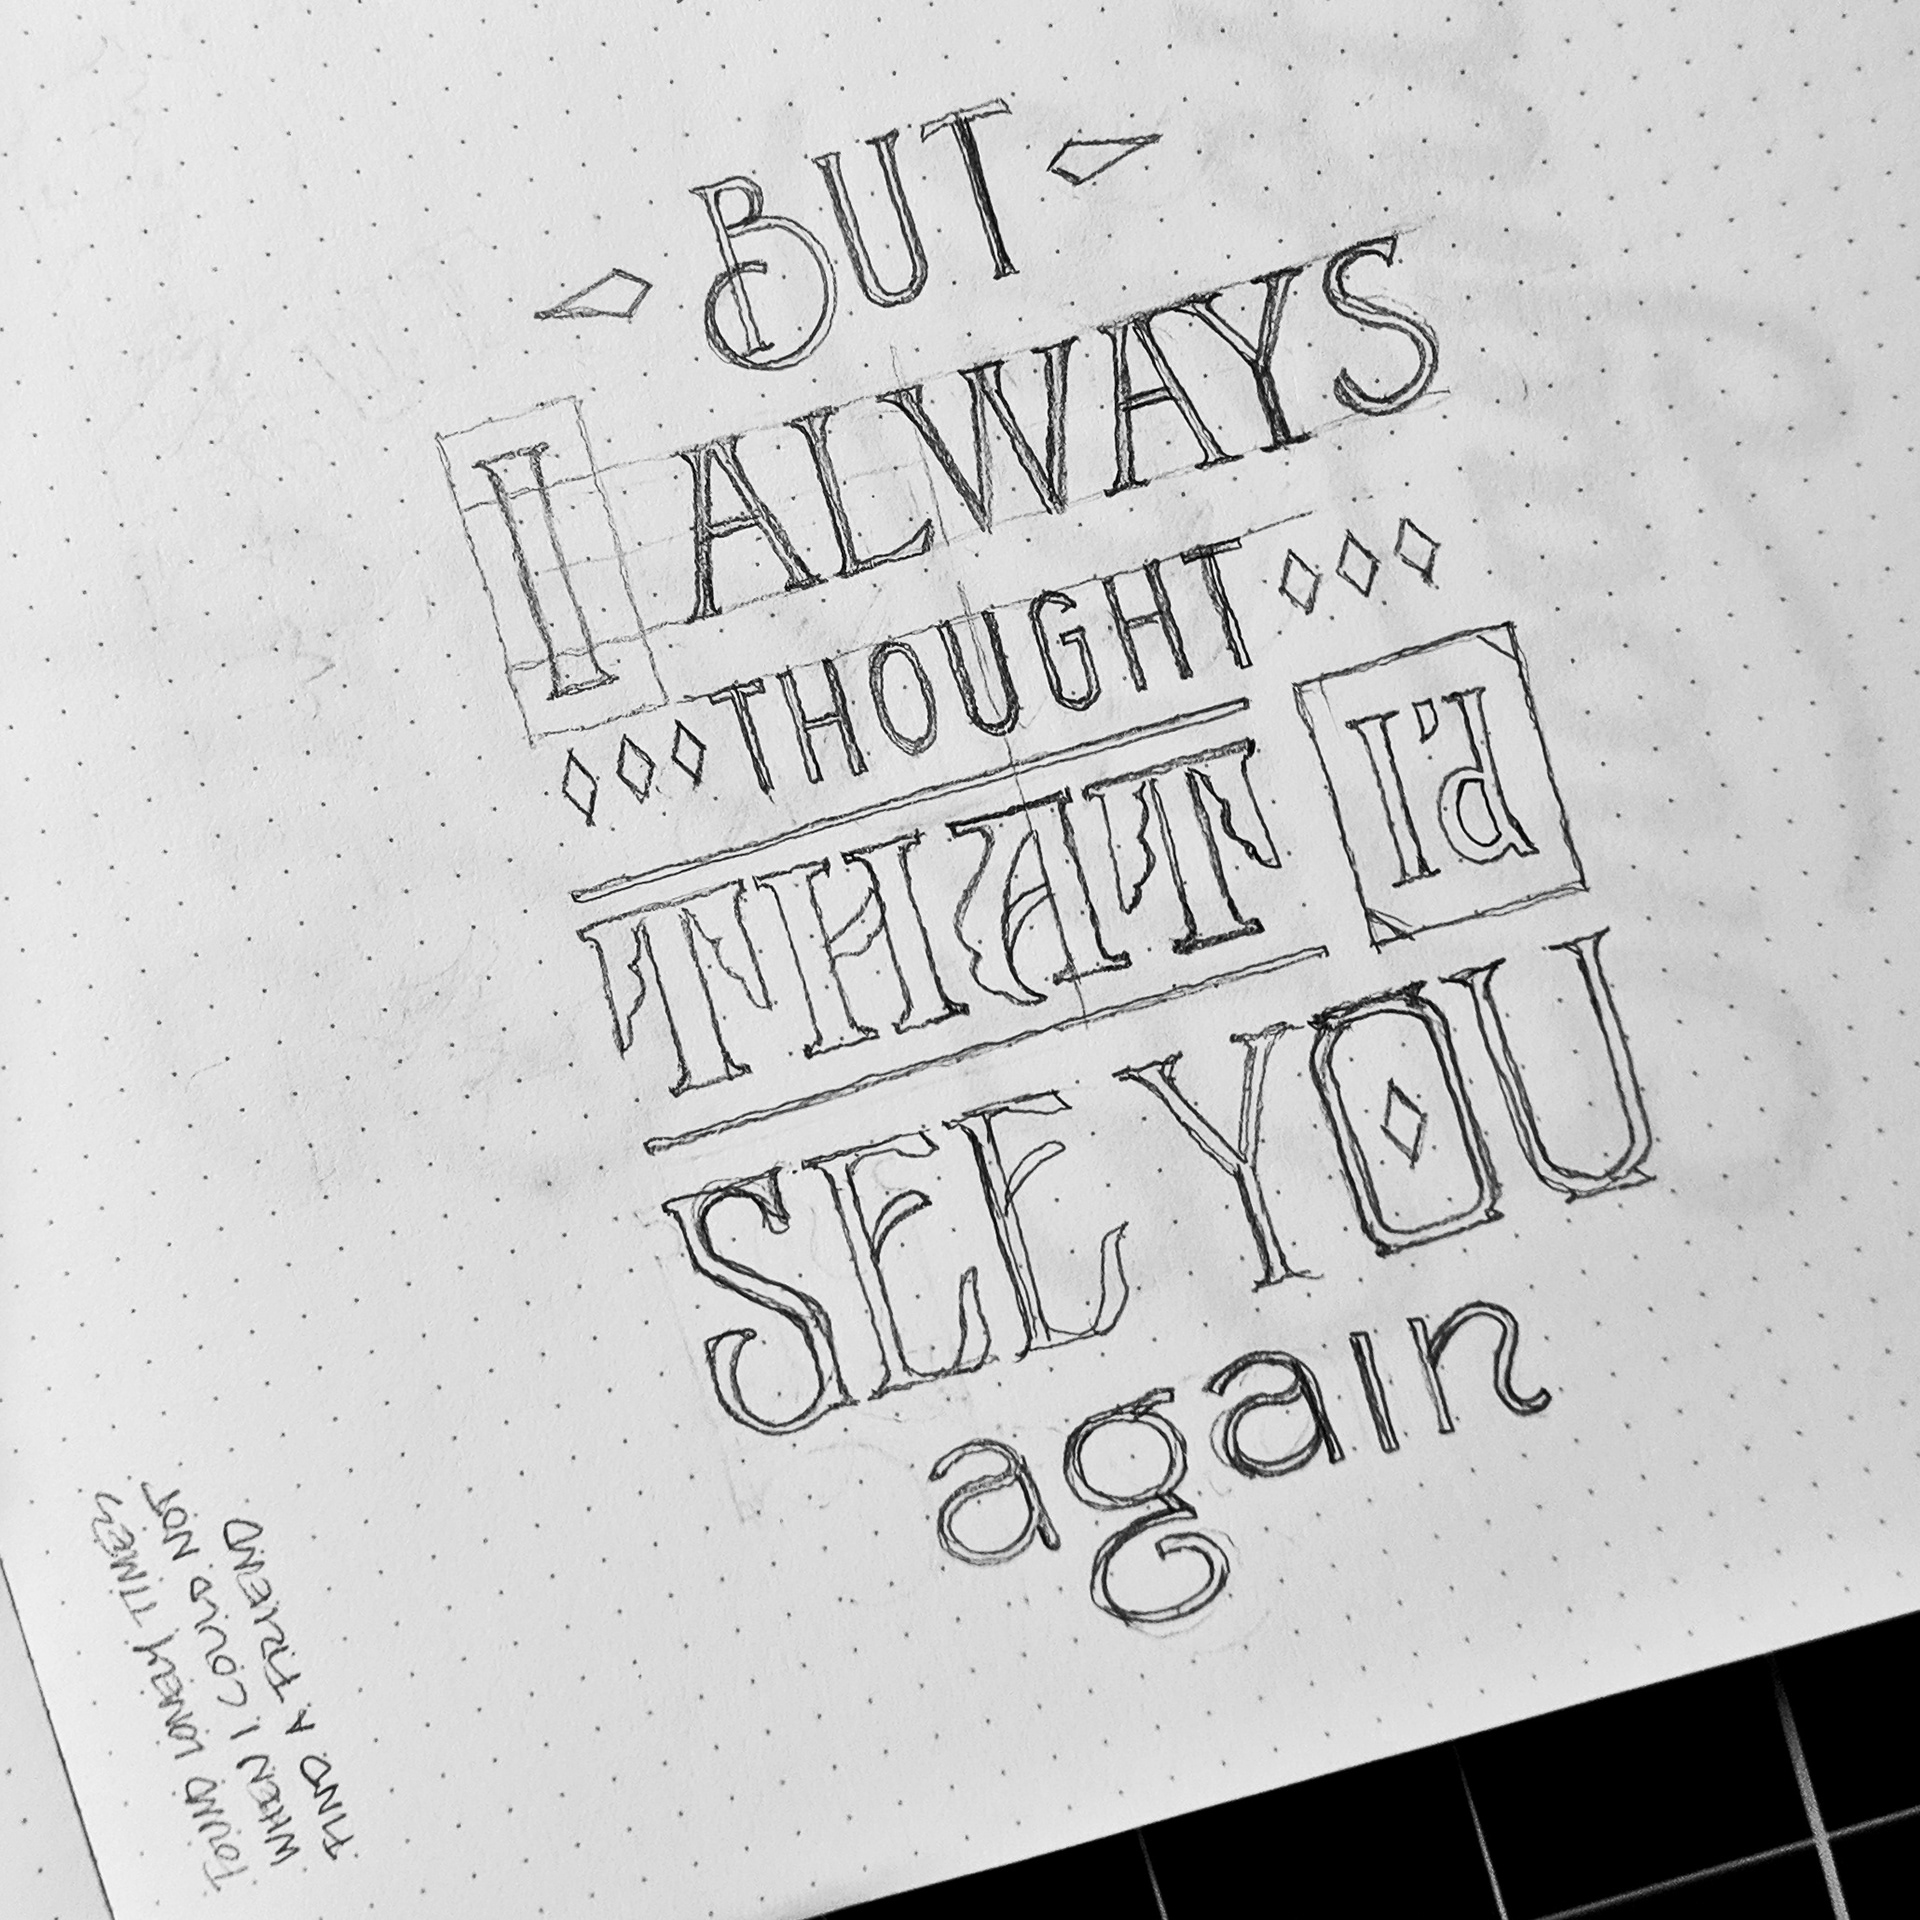 BUT
I ALWAYS
THOUGHT
THAT I'd
SEE YOU
again
FOUND LONELY TIMES
WHEN I COULD NOT
FIND A FRIEND